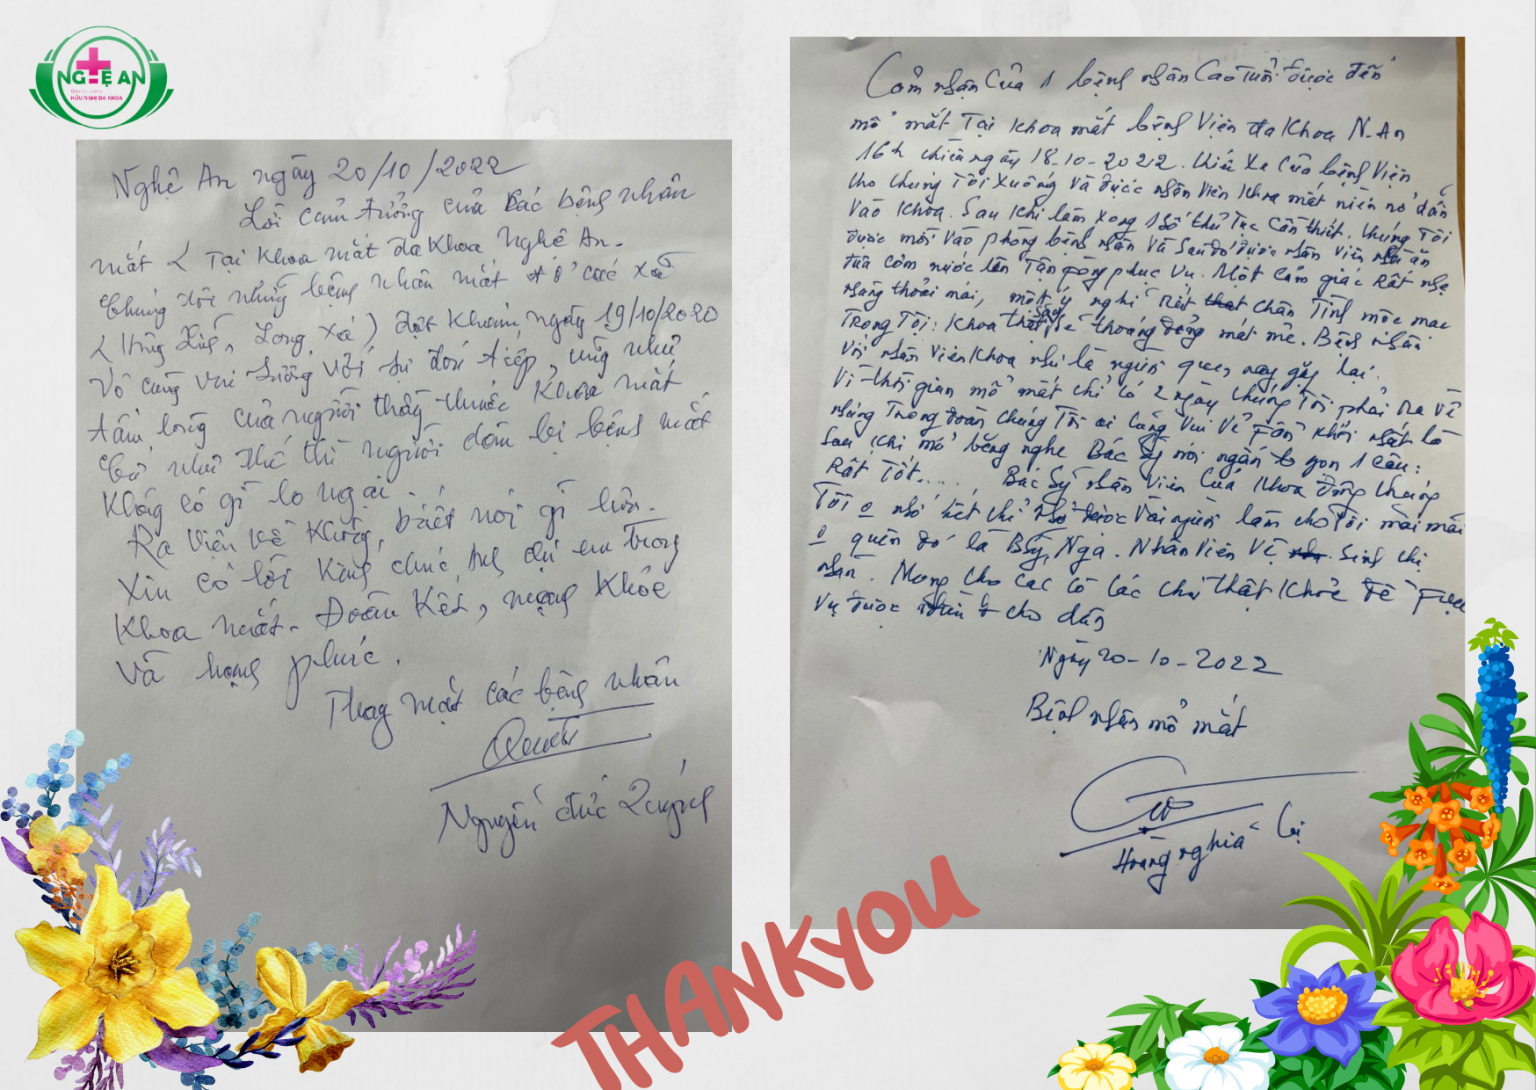 NGHỆ AN
BỆNH VIỆN
HỮU NGHỊ ĐA KHOA
Nghệ An ngày 20/10/2022
Lời cảm tưởng của các bệnh nhân
mắt Tại Khoa mắt đa Khoa Nghệ An.
Chúng tôi những bệnh nhân mắt ở các xã
Long Xá) đợt Khám, ngày 19/10/2020
Vô cùng vui sướng với sự đón tiếp, cũng như
tấm lòng của người thầy thuốc Khoa mắt
Cứ như thế thì người dân bị bệnh mắt
Không có gì lo ngại.
Ra viện về Không biết nói gì hơn.
Xin có lời Kính chúc, anh chị em trong
Khoa mắt. Đoàn Kết, mạnh Khỏe
và hạnh phúc.
Thay mặt các bệnh nhân
Nguyễn đức Quỳnh
Cảm nhận của 1 bệnh nhân Cao Tuổi được đến
mổ mắt Tại Khoa mắt bệnh Viện đa Khoa N-An
16h chiều ngày 18-10-2022. Chiếc Xe Của bệnh Viện
cho chúng Tôi Xuống và được nhân Viên Khoa mắt niềm nở dẫn
Vào Khoa. Sau Khi làm xong 1 số thủ Tục Cần thiết. Chúng Tôi
được mời Vào phòng bệnh nhân và Sau đó được nhân Viên nhà ăn
đưa cơm nước lên Tận phòng phục vụ. Một Cảm giác Rất nhẹ
nhàng thoải mái, một ý nghĩ Rất chân Tình mộc mạc
Trong Tôi: Khoa thật sạch sẽ thoáng mát mẻ. Bệnh nhân
Với nhân Viên Khoa như là người quen nay gặp lại.
Vì thời gian mổ mắt chỉ có 2 ngày chúng Tôi phải Ra về
nhưng Trong đoàn chúng Tôi ai cũng Vui Vẻ Phấn Khởi nhất là
Sau Khi mở băng nghe Bác Sỹ nói ngắn gọn 1 câu:
Rất Tốt..... Bác Sỹ nhân Viên Của Khoa đông chúng
Tôi o nhớ hết chỉ nhớ được Vài người làm cho Tôi mãi mãi
o quên đó là BSỹ, Nga. Nhân Viên Vệ Sinh chị
nhàn. Mong cho các cô các chú thật Khỏe để Phục
Vụ được cho dân
Ngày 20-10-2022
Bệnh nhân mổ mắt
Hoàng nghĩa
THANKYOU